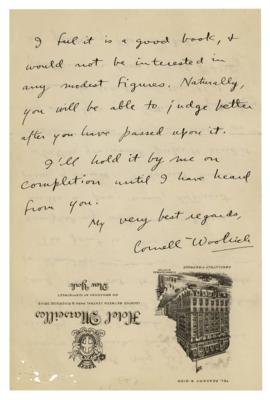 I feel it is a good book, &
would not be interested in
any modest figures. Naturally,
you will be able to judge better
after you have passed upon it.
I'll hold it by me on
completion until I have heard
from you.
My very best regards,
Cornell Woolrich
Hotel Marseilles
New York